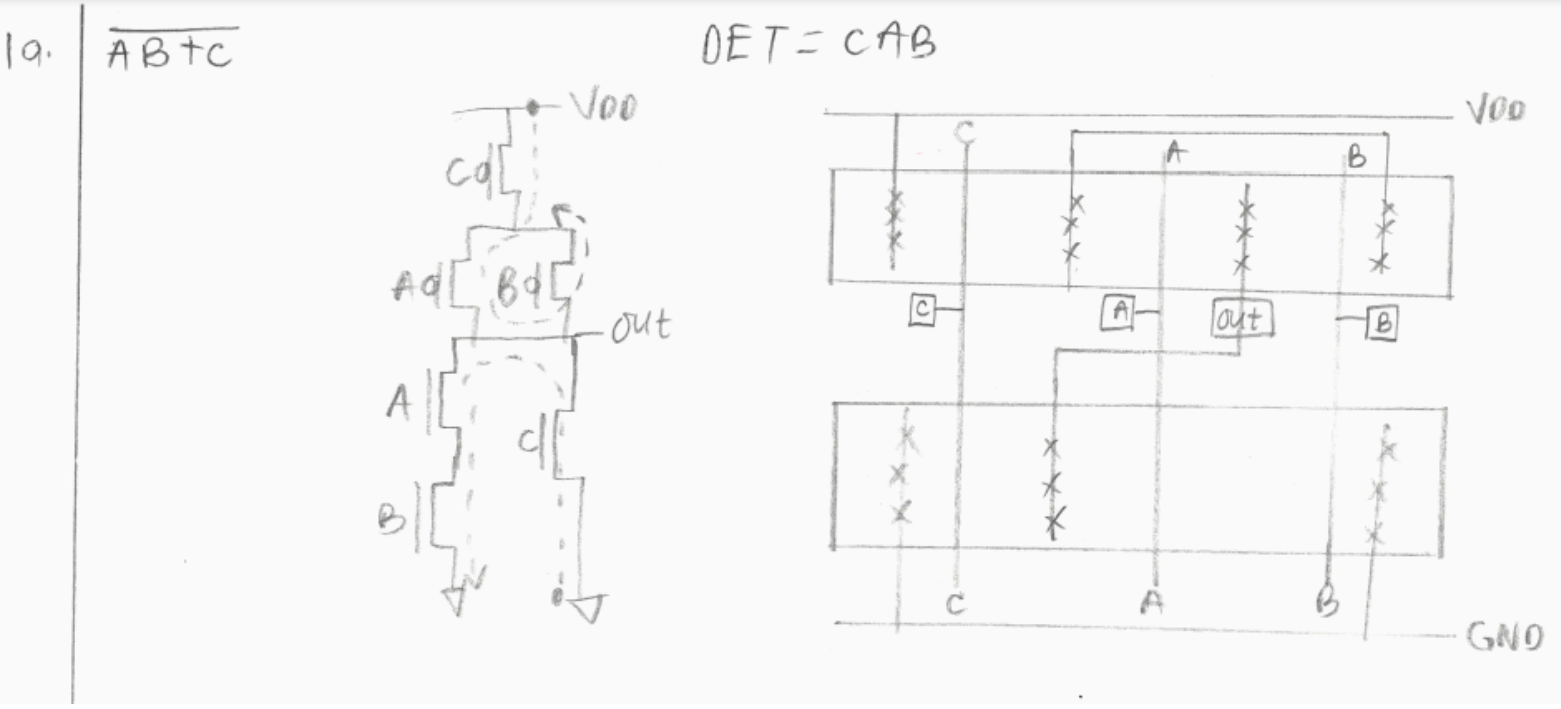 1a. \overline{AB+C}
DET = CAB
VDD
C
A
B
OUT
A
C
B
VDD
C
A
B
C
A
OUT
B
C
A
B
GND